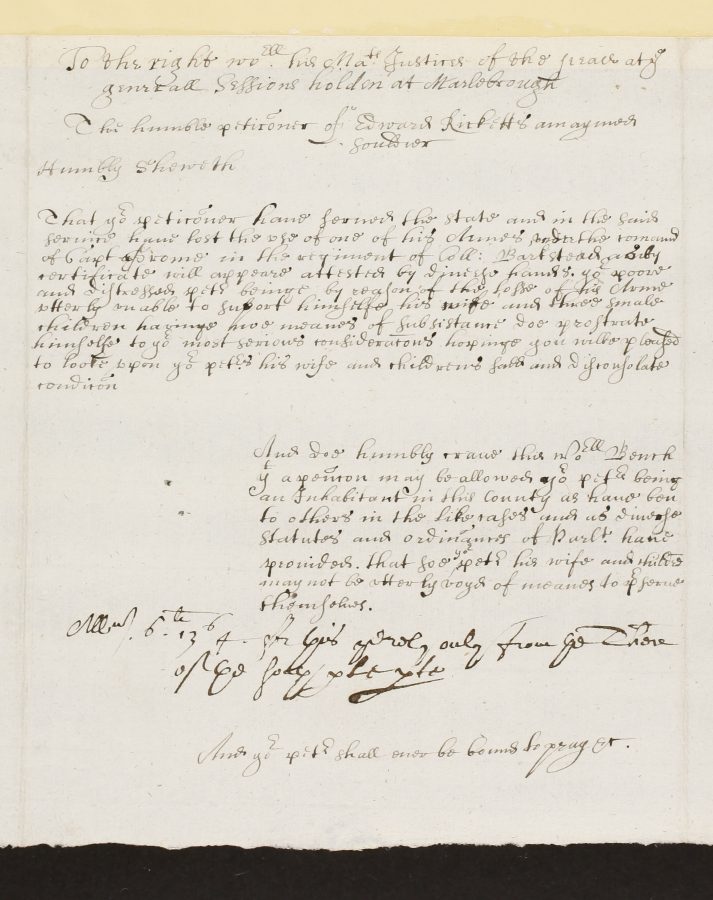 To the right wo:ll his Ma:ts Justices of the peace at ye
generall Sessions holden at Marlebrough
The humble peticoner of Edward Ricketts a maymed
souldier
Humbly Sheweth
That yor peticoner haue serued the State and in the said
seruice haue lost the vse of one of his Armes vnder the comand
of Capt Frome in the regiment of Coll: Barkstead as by
certificate will appeare attested by diuerse hands. yor poore
and distressed petr beinge by reason of the losse of his Arme
vtterly vnable to suport himselfe his wife and three smale
children havinge noe meanes of subsistance doe prostrate
himselfe to yor most serious consideracons hopinge you wilbe pleased
to looke vpon yor petrs his wife and childrens sadd and disconsolate
condicon
And doe humbly craue this Wo:ll Bench
yt a pencon may be allowed yor petr being
an Inhabitant in this County as haue ben
to others in the like cases and as diuerse
Statutes and ordinances of Parlt. haue
prouided. that soe yor petr his wife and childre
may not be vtterly voyd of meanes to pserue
themselues.
6
13 4 for his only from the
of the
And yor petr shall euer be bound to pray &c.